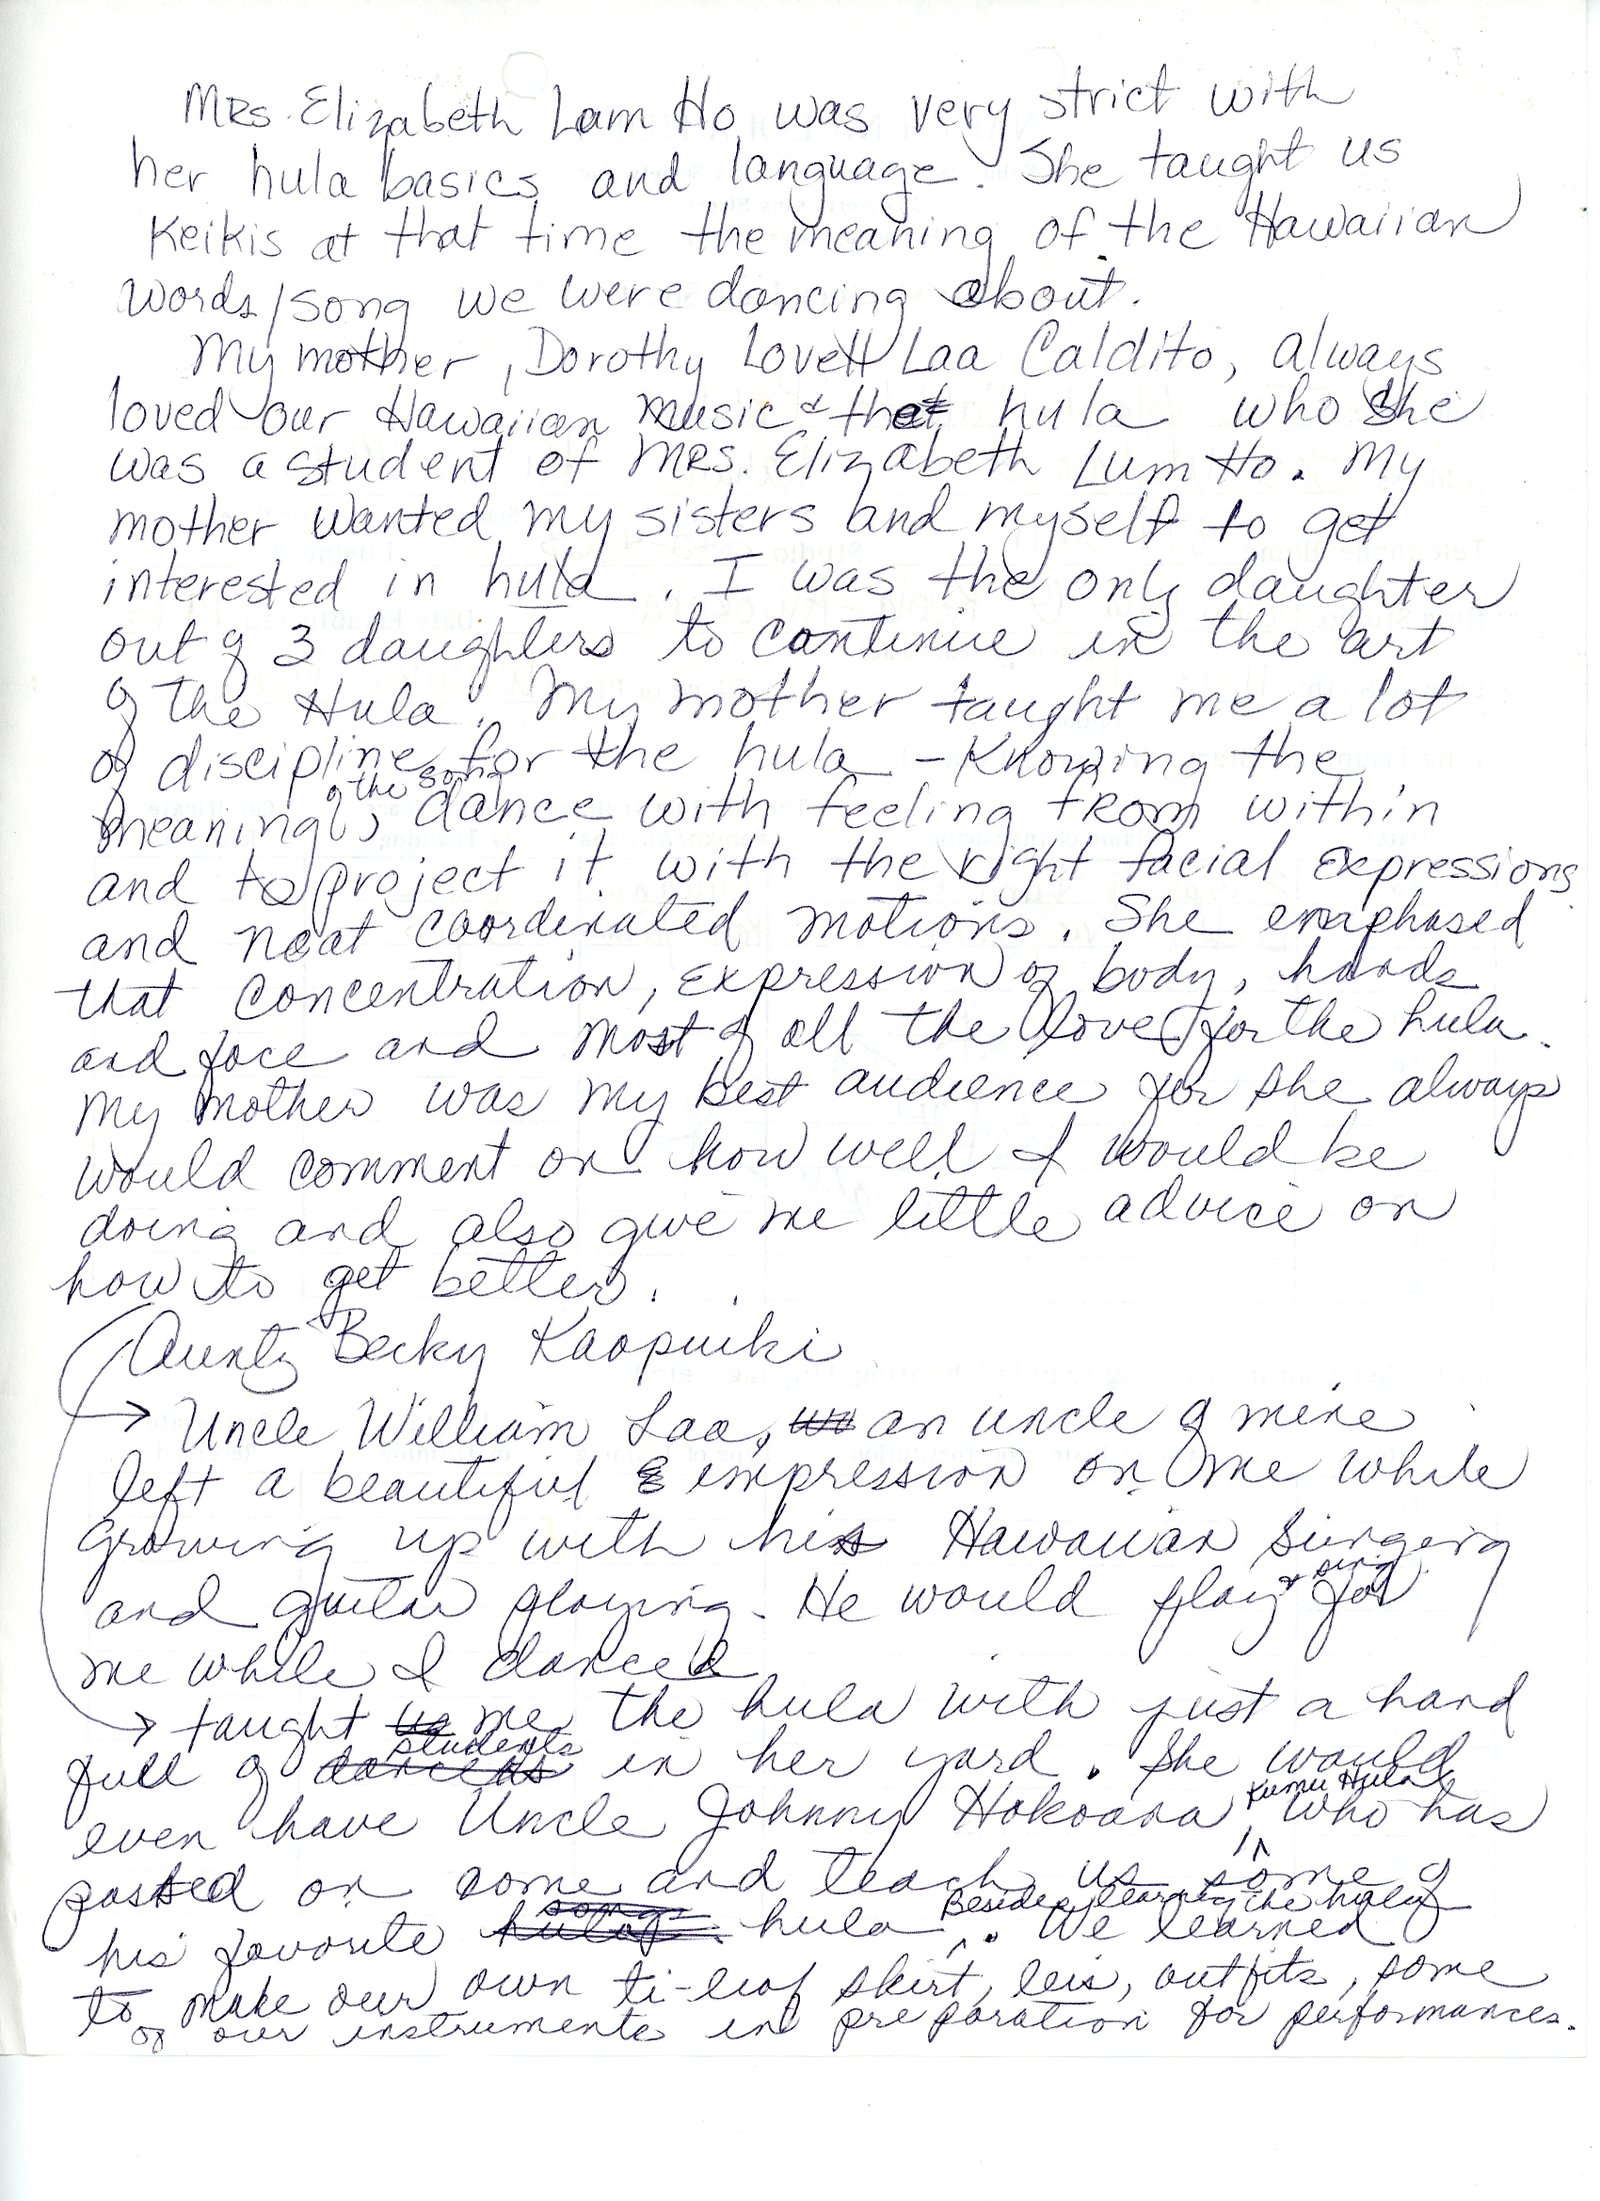 Mrs. Elizabeth Lam Ho was very strict with
her hula basics and language. She taught us
Keikis at that time the meaning of the Hawaiian
words/song we were dancing about.
My mother, Dorothy Lovett Laa Caldito, always
loved our Hawaiian music & the hula who she
was a student of Mrs. Elizabeth Lum Ho. My
mother wanted my sisters and myself to get
interested in hula. I was the only daughter
out of 3 daughters to continue in the art
of the Hula. My mother taught me a lot
of discipline for the hula - Knowing the
meaning of the song, dance with feeling from within
and to project it with the right facial expressions
and neat coordinated motions. She emphased
that concentration, expression of body, hands
and face and most of all the love for the hula.
My mother was my best audience for she always
would comment on how well I would be
doing and also give me little advice on
how to get better.
Aunty Becky Kaopuiki
→ Uncle William Laa, an uncle of mine
left a beautiful impression on me while
growing up with his Hawaiian singing
and guitar playing. He would play & sing for
me while I danced
→ taught me the hula with just a hand
full of students in her yard. She would
even have Uncle Johnny Hokoana, Kumu Hula who has
passed on come and teach us some of
his favorite hula. Besides learning the hula We learned
to make our own ti-leaf skirt, leis, outfits, some
of our instruments in preparation for performances.